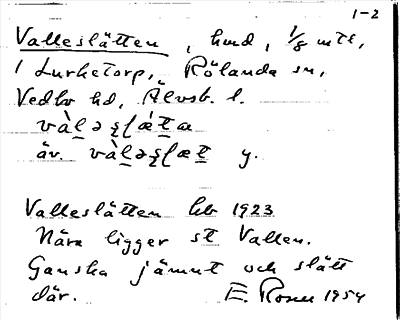 1-2
Valleslätten, hmd, 1/8 mtl,
i Lurketorp, Rölanda sn,
Vedbo hd, Älvsb. l.
äv. y.
Valleslätten hb 1923
Nära ligger st Vallen.
Ganska jämnt och slätt
där. E. Rosen 1954